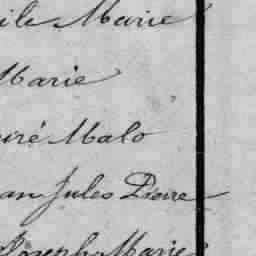 ile Marie
Marie
uré Malo
an Jules Pierre
Joseph Marie